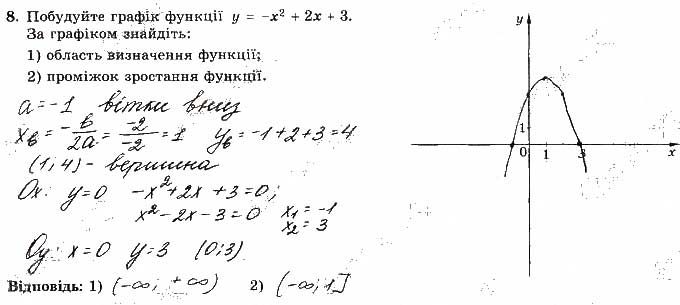 8. Побудуйте графік функції y = -x² + 2x + 3.
За графіком знайдіть:
1) область визначення функції;
2) проміжок зростання функції.
a = -1 вітки вниз
x_в = -в/2a = -2/-2 = 1 y_в = -1+2+3=4
(1, 4) - вершина
Ox: y=0 -x²+2x+3=0;
x²-2x-3=0 x₁=-1
x₂=3
Oy: x=0 y=3 (0;3)
Відповідь: 1) (-∞; +∞) 2) (-∞; 1]
y
1
0 1 3 x